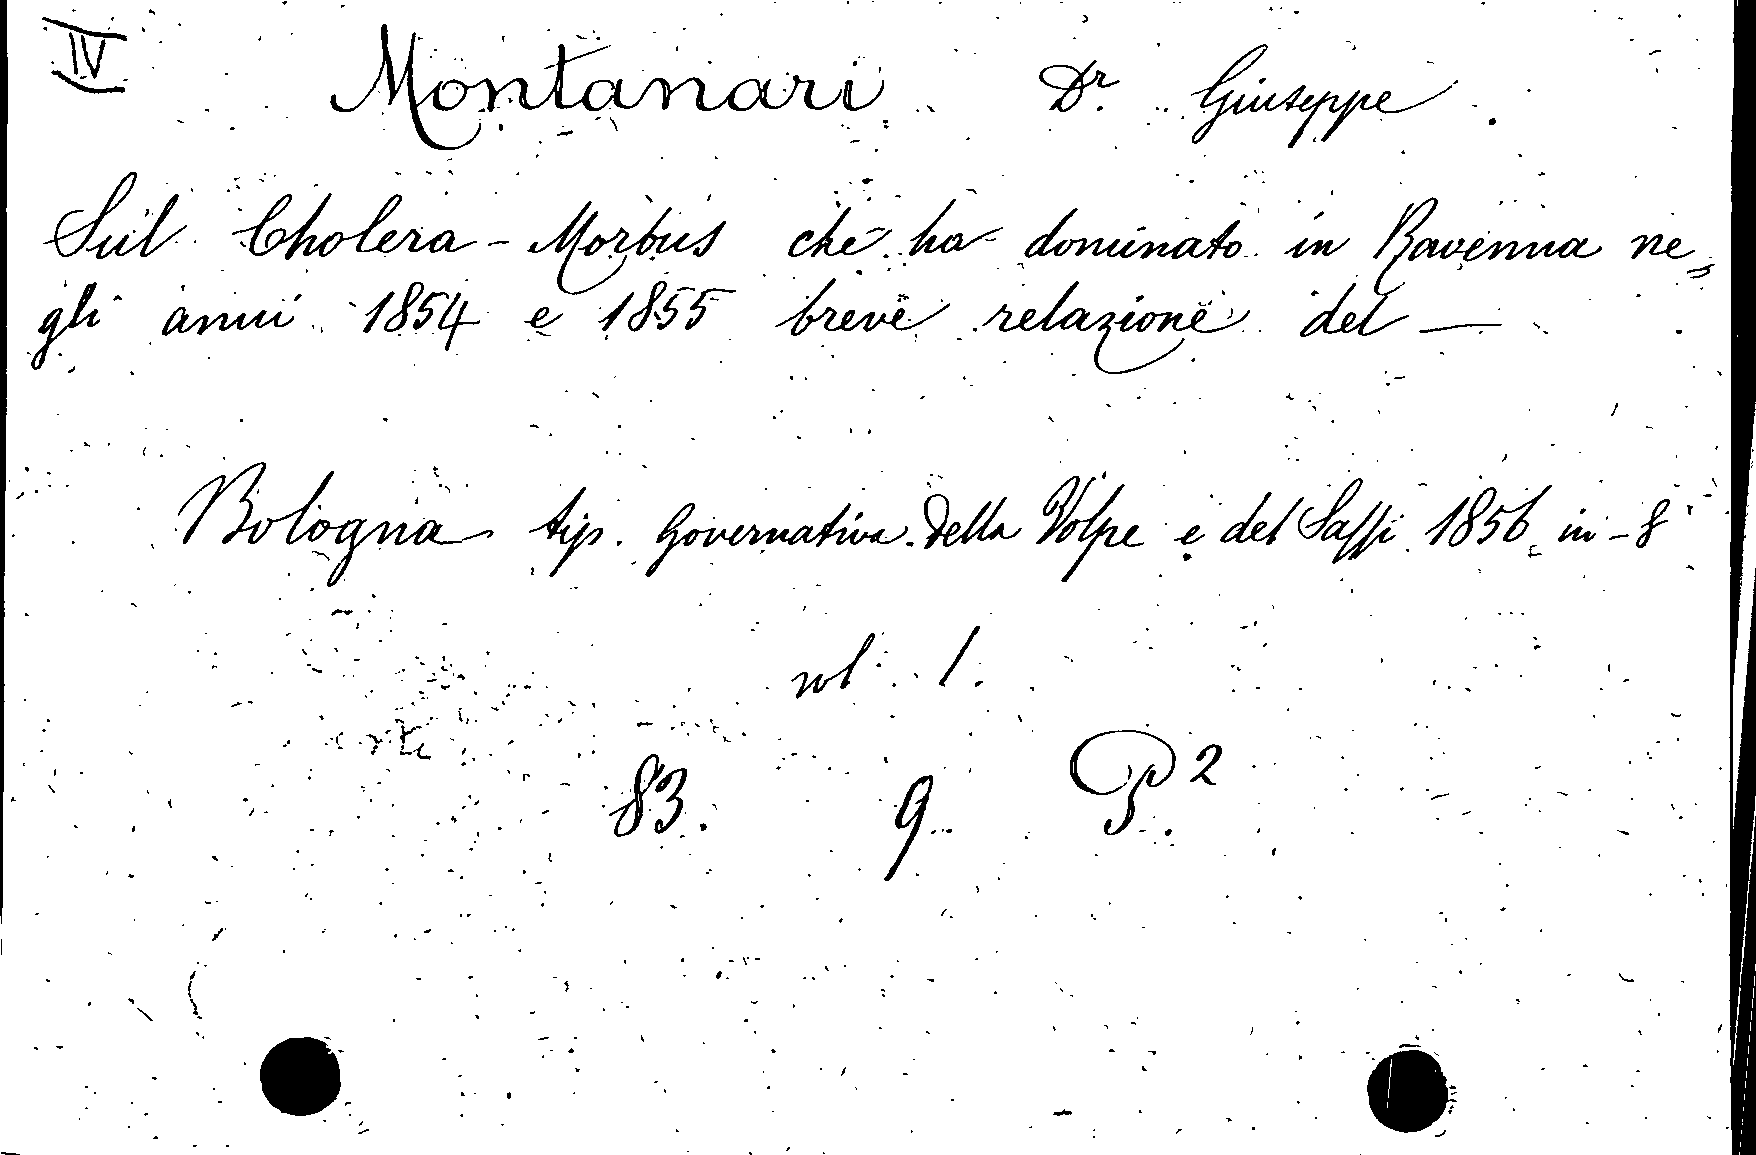 IV
Montanari Dr. Giuseppe
Sul Cholera-Morbus che ha dominato in Ravenna ne„
gli anni 1854 e 1855 breve relazione del —
Bologna tip. Governativa della Volpe e del Sassi 1856 in-8
vol 1.
83. 9 P.2